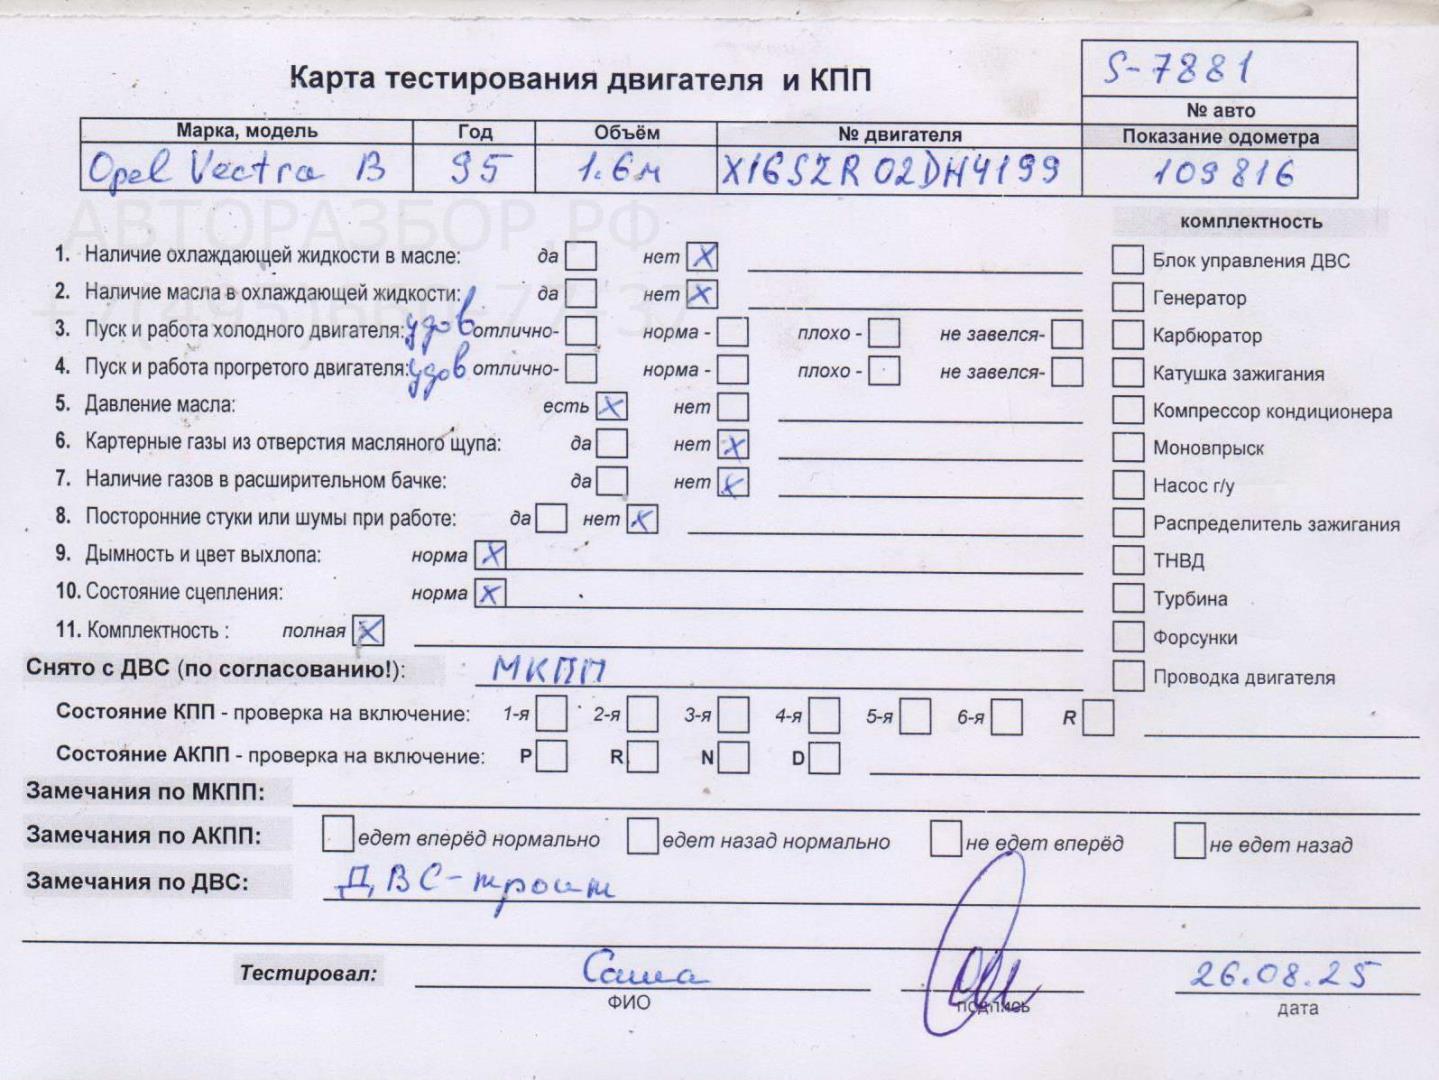 S-7881
Карта тестирования двигателя и КПП
№ авто
Марка, модель Год Объём № двигателя Показание одометра
Opel Vectra B 95 1.6м X16SZR 02DH4199 109816
АВТОРАЗБОР.РФ
комплектность
1. Наличие охлаждающей жидкости в масле: да нет X Блок управления ДВС
2. Наличие масла в охлаждающей жидкости: да нет X Генератор
3. Пуск и работа холодного двигателя: удов отлично- норма - плохо - не завелся- Карбюратор
4. Пуск и работа прогретого двигателя: удов отлично- норма - плохо - не завелся- Катушка зажигания
5. Давление масла: есть X нет Компрессор кондиционера
6. Картерные газы из отверстия масляного щупа: да нет X Моновпрыск
7. Наличие газов в расширительном бачке: да нет X Насос г/у
8. Посторонние стуки или шумы при работе: да нет X Распределитель зажигания
9. Дымность и цвет выхлопа: норма X ТНВД
10. Состояние сцепления: норма X Турбина
11. Комплектность : полная X Форсунки
Снято с ДВС (по согласованию!): МКПП Проводка двигателя
Состояние КПП - проверка на включение: 1-я 2-я 3-я 4-я 5-я 6-я R
Состояние АКПП - проверка на включение: P R N D
Замечания по МКПП:
Замечания по АКПП: едет вперёд нормально едет назад нормально не едет вперёд не едет назад
Замечания по ДВС: ДВС-троит
Тестировал: Саша 26.08.25
ФИО подпись дата